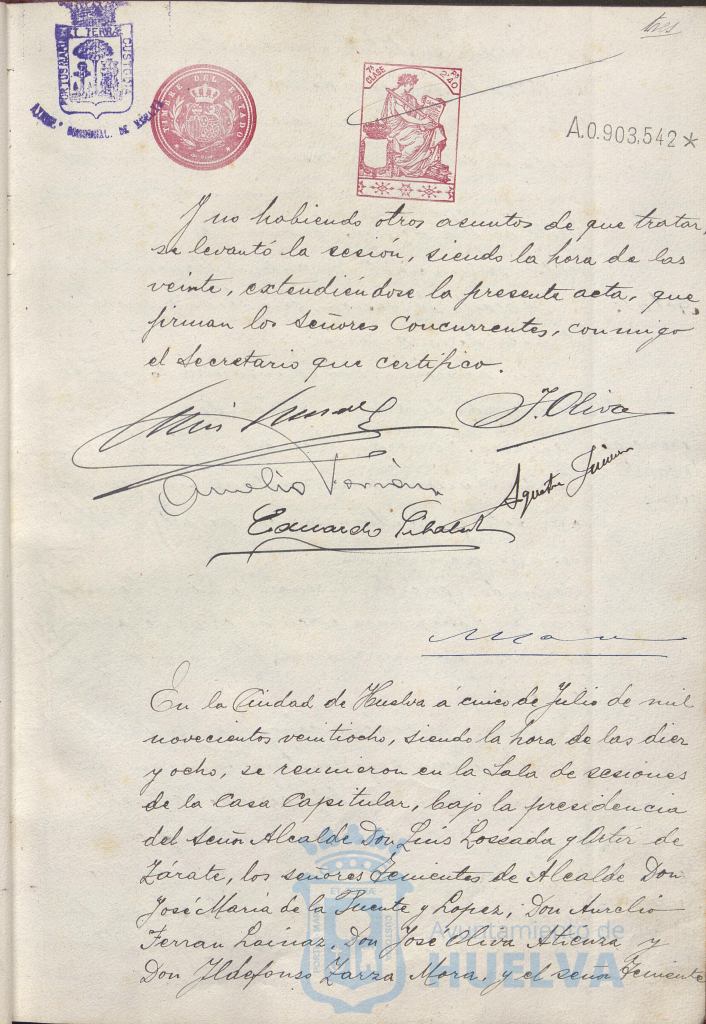 tres
PORTUS MARIS ET TERRÆ CUSTODIA
TIMBRE DEL ESTADO
7ª CLASE
2'40
A.0.903,542*
Y no habiendo otros asuntos de que tratar,
se levantó la sesión, siendo la hora de las
veinte, extendiéndose la presente acta, que
firman los señores concurrentes, conmigo
el Secretario que certifico.
J. Oliva
Aurelio
Eduardo
En la Ciudad de Huelva á cinco de Julio de mil
novecientos veintiocho, siendo la hora de las diez
y ocho, se reunieron en la Sala de sesiones
de la Casa Capitular, bajo la presidencia
del señor Alcalde Don Luis Loscada y Ortiz de
Zárate, los señores Tenientes de Alcalde Don
José María de la Puente y Lopez, Don Aurelio
Ferran Lainaz, Don José Oliva Atienza y
Don Ildefonso Zarza Mora, y el señor Teniente
Ayuntamiento de
HUELVA